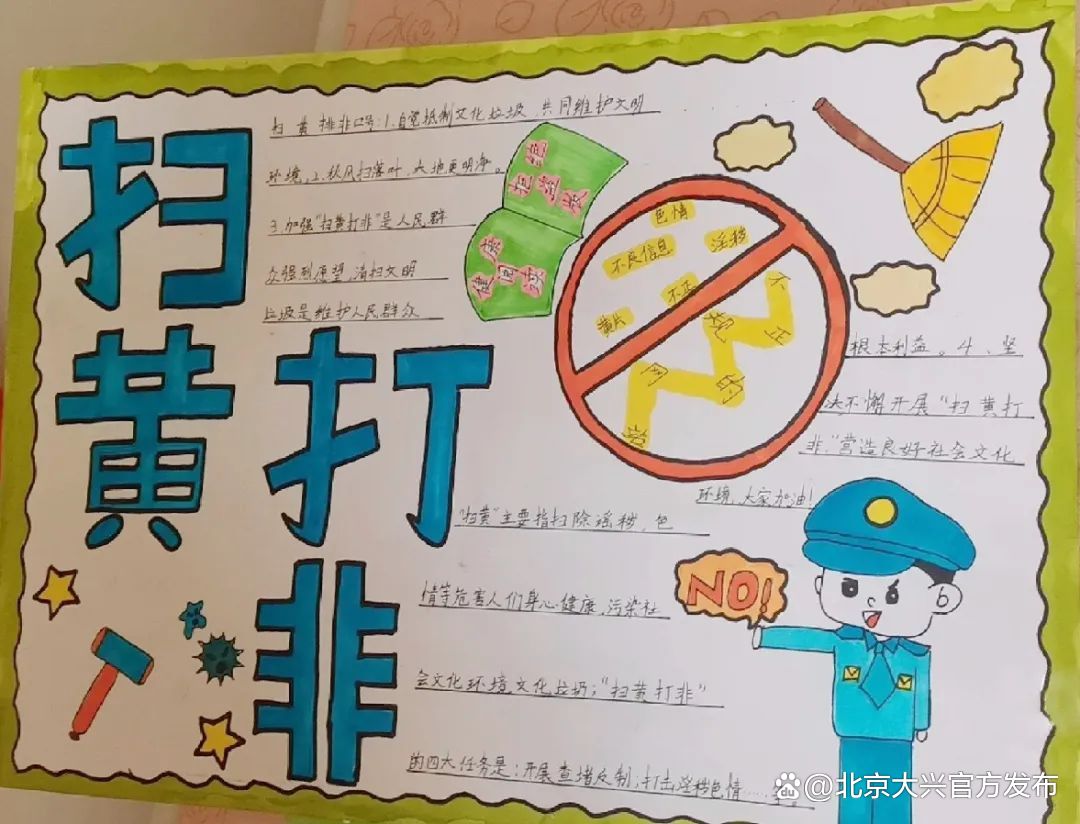 扫黄打非
扫黄排非口号:1.自觉抵制文化垃圾,共同维护文明
环境,2.秋风扫落叶,大地更明净。
3.加强"扫黄打非"是人民群
众强烈愿望,清扫文明
垃圾是维护人民群众
根本利益。4、坚
决不懈开展"扫黄打
非"营造良好社会文化
环境,大家加油!
拒绝
盗版
健康
阅读
色情
淫秽
不良信息
不正
黄片
不正
规
的
网
站
"扫黄"主要指扫除淫秽,色
情等危害人们身心健康,污染社
会文化环境文化垃圾;"扫黄打非"
的四大任务是:开展查堵反制;打击淫秽色情……等。
NO!
@北京大兴官方发布